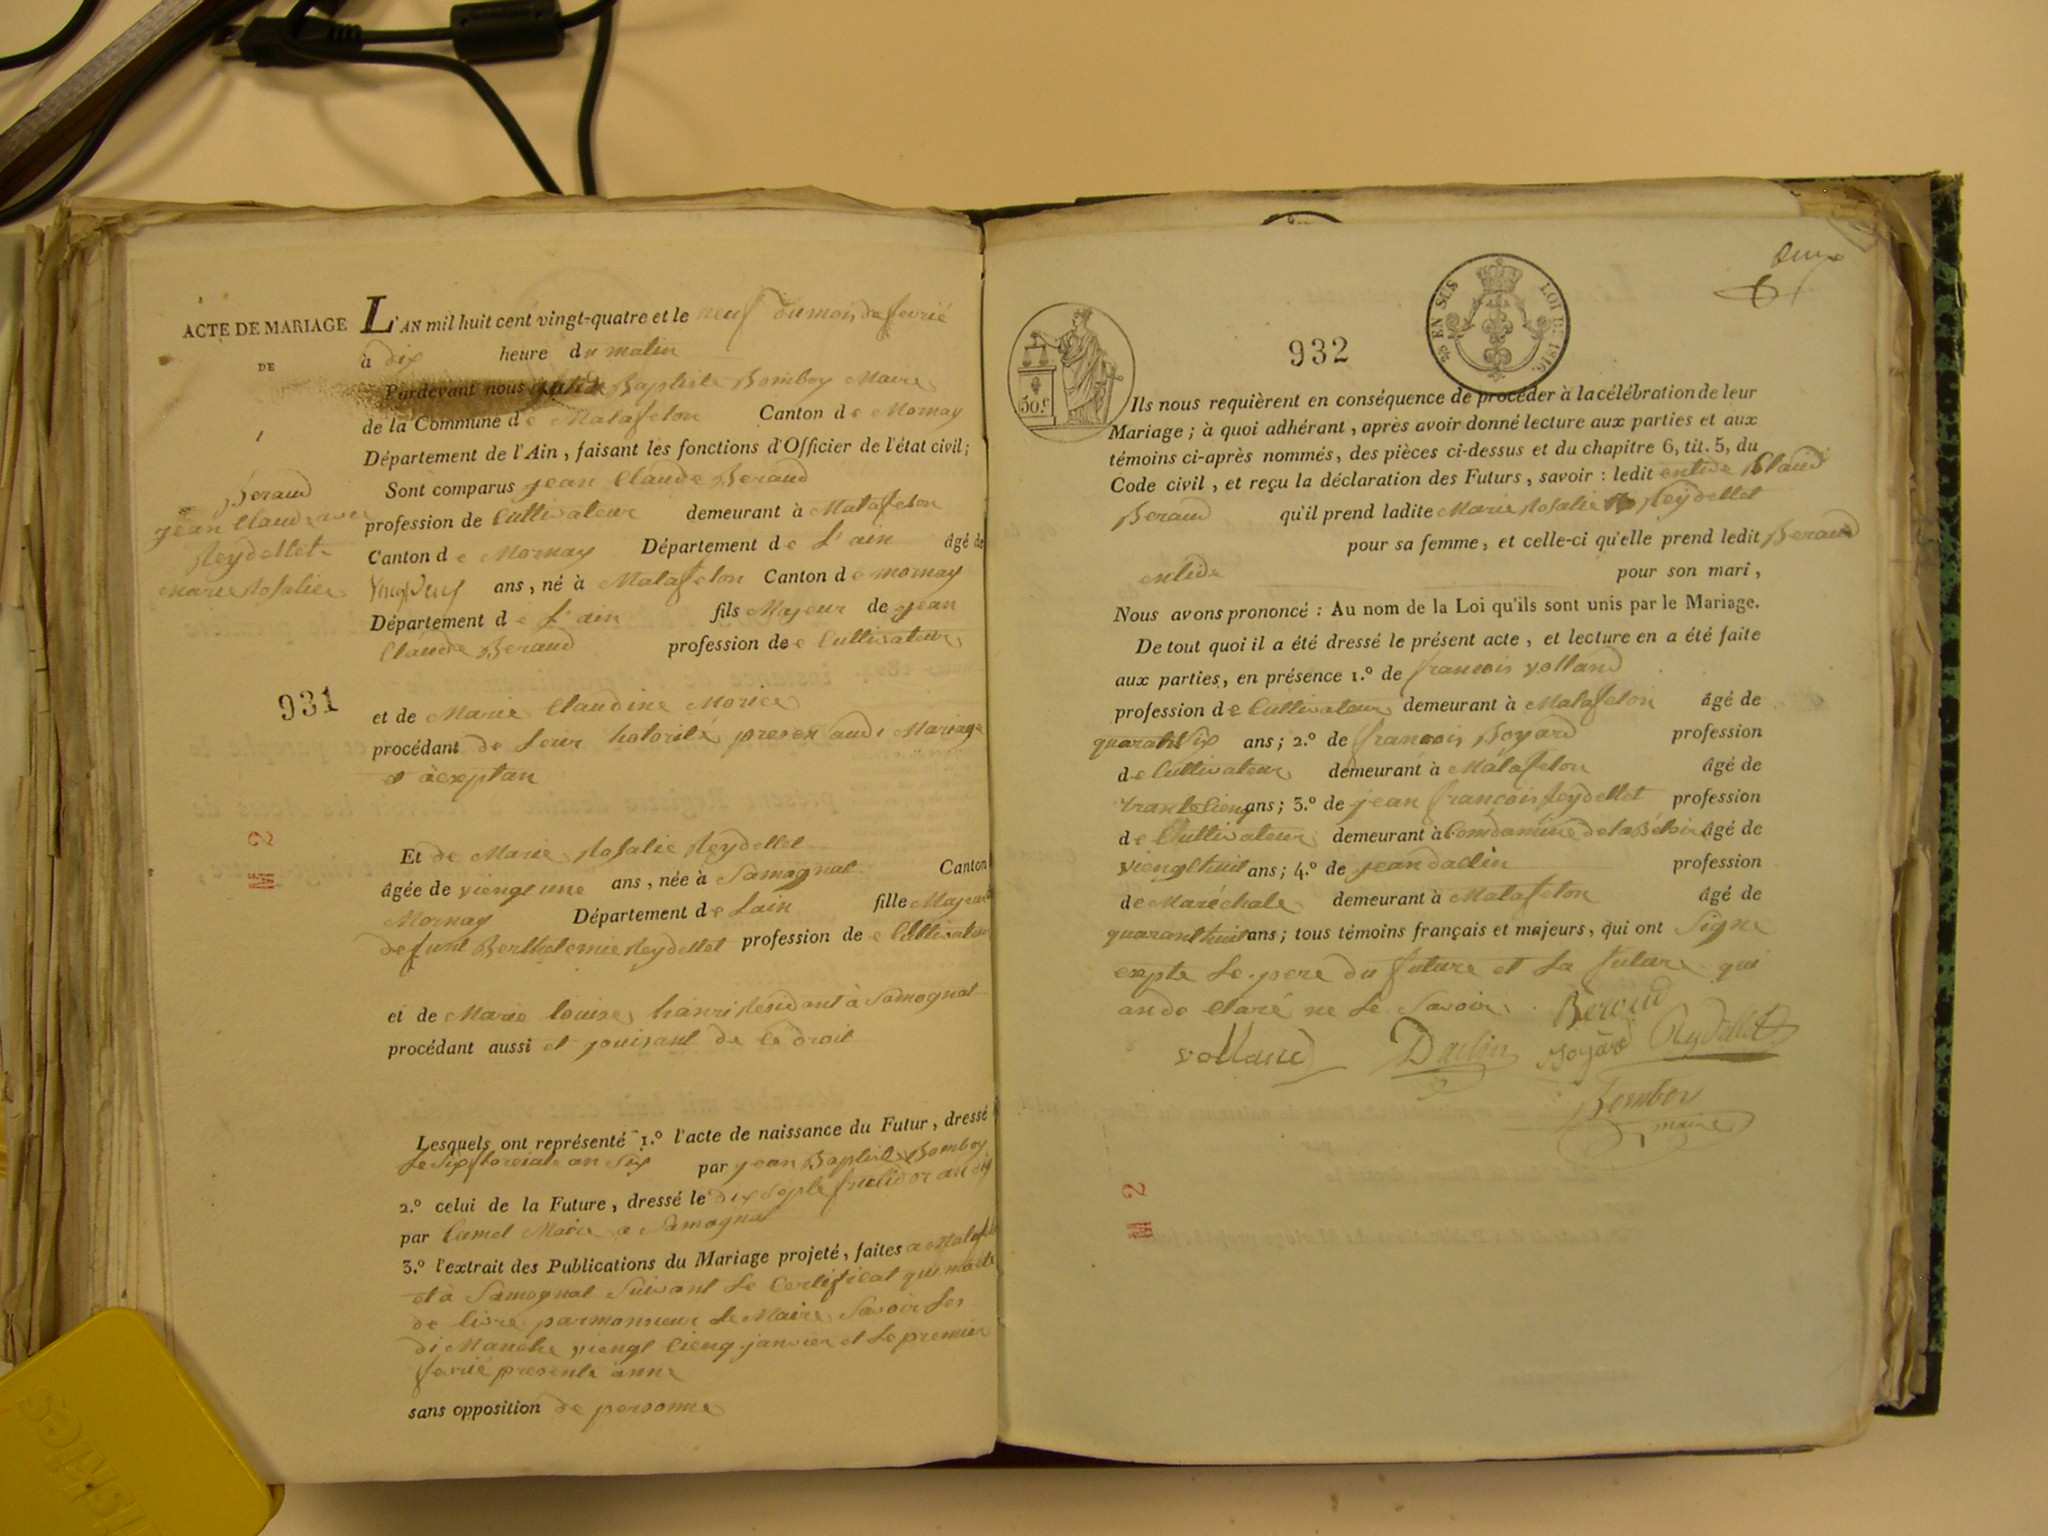 ACTE DE MARIAGE
DE
1
Beraud
jean Claude avec
Reydellet
marie Rosalie
931
L'AN mil huit cent vingt-quatre et le neuf du mois de fevrié
à dix heure du matin
Pardevant nous Baptiste Bomboy Maire
de la Commune de Matafelon Canton de Mornay
Département de l'Ain, faisant les fonctions d'Officier de l'état civil;
Sont comparus jean Claude Beraud
profession de Cultivateur demeurant à Matafelon
Canton de Mornay Département de L'ain âgé de
ans, né à Matafelon Canton de mornay
Département de L'ain fils Majeur de jean
Claude Beraud profession de Cultivateur
et de Marie Claudine Morice
procédant de leur hotorité presen audi Mariage
et àcexptan
Et de Marie Rosalie Reydellet
âgée de viengt une ans, née à Samognat Canton
Mornay Département de Lain fille Majeur
defunt Berthelemie Reydellet profession de Cultivateur
et de Marie louise hanri Residant à Samognat
procédant aussi et jouisant de cé droit
Lesquels ont représenté 1.° l'acte de naissance du Futur, dressé
Le Six floreial an Six par jean Baptiste Bomboy
2.° celui de la Future, dressé le dix septe fruclidor an dix
par Camel Maire a Samognat
3.° l'extrait des Publications du Mariage projeté, faites a Matafelon
et à Samognat Suivant Le Certificat qui
de livré par monsieur Le Maire Savoir Les
di Manche viengt Cienq janvier et Le premier
fevrié presente anne
sans opposition de personne
EN SUS LOI DE 1816.
50.c
932
Ils nous requièrent en conséquence de procéder à la célébration de leur
Mariage; à quoi adhérant, après avoir donné lecture aux parties et aux
témoins ci-après nommés, des pièces ci-dessus et du chapitre 6, tit. 5, du
Code civil, et reçu la déclaration des Futurs, savoir: ledit Claud
Beraud qu'il prend ladite Marie Rosalie Reydellet
pour sa femme, et celle-ci qu'elle prend ledit Beraud
pour son mari,
Nous avons prononcé: Au nom de la Loi qu'ils sont unis par le Mariage.
De tout quoi il a été dressé le présent acte, et lecture en a été faite
aux parties, en présence 1.° de francois volland
profession de Cultivateur demeurant à Matafelon âgé de
quarante Six ans; 2.° de francois Boyard profession
de Cultivateur demeurant à Matafelon âgé de
trante Cienq ans; 3.° de jean françois Reydellet profession
de Cultivateur demeurant à Condamine de la Béloire âgé de
viengt huit ans; 4.° de jean daclin profession
de Maréchale demeurant à Matafelon âgé de
quarant huit ans; tous témoins français et majeurs, qui ont Signe
expte Le pere du future et La future qui
an de claré ne Le Savoir. Beraud
volland Daclin Boyard Reydellet
Bomboy
maire